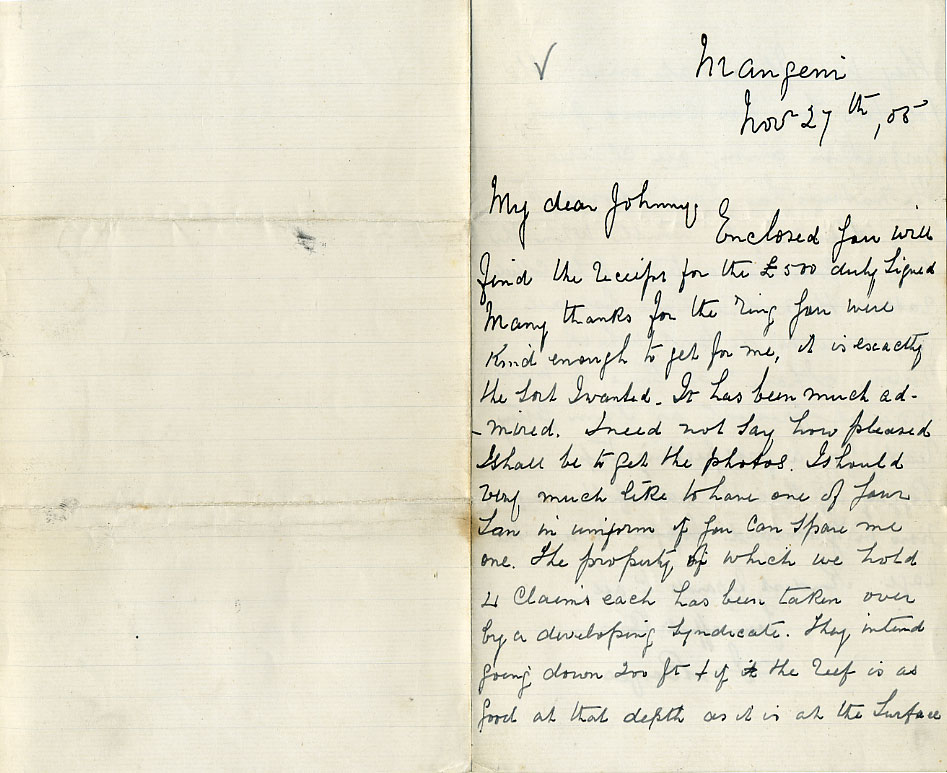 Mangeni
Nov 27th, 05
My dear Johnny,
Enclosed you will
find the receipt for the £500 duly signed
Many thanks for the ring you were
kind enough to get for me, it is exactly
the sort I wanted. It has been much ad-
-mired. I need not say how pleased
I shall be to get the photos. I should
very much like to have one of your
Ian in uniform if you can spare me
one. The property of which we hold
4 Claims each has been taken over
by a developing Syndicate. They intend
going down 200 ft & if the reef is as
good at that depth as it is at the Surface